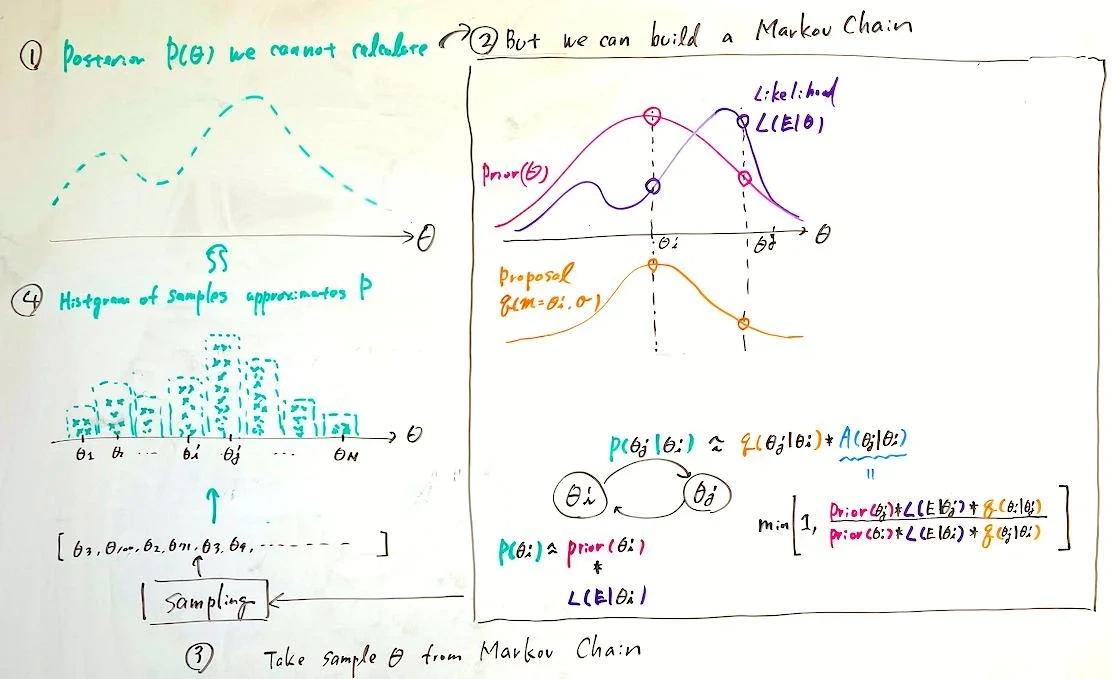 ① Posterior P(θ) we cannot calculate
② But we can build a Markov Chain
Likelihood
L(E|θ)
Prior(θ)
θi
θj
θ
θ
Proposal
q(m=θi,σ)
④ Histgram of samples approximates P
θ
θ1
...
θi
θj
...
θN
P(θj|θi) ≈ q(θj|θi)*A(θj|θi)
=
θi
θj
min[1, Prior(θj)*L(E|θj)*q(θi|θj)
prior(θi)*L(E|θi)*q(θj|θi)]
P(θi) ≈ prior(θi)
*
L(E|θi)
Sampling
③ Take sample θ from Markov Chain